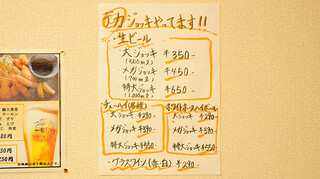 メガジョッキやってます!!
・生ビール
大ジョッキ ¥350-
(500ml)
メガジョッキ ¥450-
(700ml)
特大ジョッキ ¥650-
(1,000ml)
チューハイ(各種)
大ジョッキ ¥290-
メガジョッキ ¥390-
特大ジョッキ ¥550-
ホワイトホースハイボール
大ジョッキ ¥290-
メガジョッキ ¥390-
特大ジョッキ ¥550-
・グラスワイン(赤・白) ¥290-